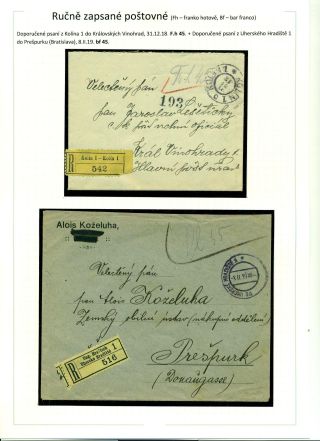 Ručně zapsané poštovné (Fh – franko hotově, Bf – bar franco)
Doporučené psaní z Kolína 1 do Královských Vinohrad, 31.12.18. F.h 45. + Doporučené psaní z Uherského Hradiště 1
do Prešpurku (Bratislava), 8.II.19. bf 45.
Velectěný pán
193
pan Jaroslav
c. k. pošt
Král Vinohrady
Hlavní pošt úřad
R
Kolín 1 – Kolín 1
542
Alois Koželuha,
Velectený pán
pan Alois Koželuha
Zemský obilní ústav (nákupní oddělení)
Prešpurk
(Donaugasse)
R
Ung. Hradisch 1
Uherské Hradiště 1
516